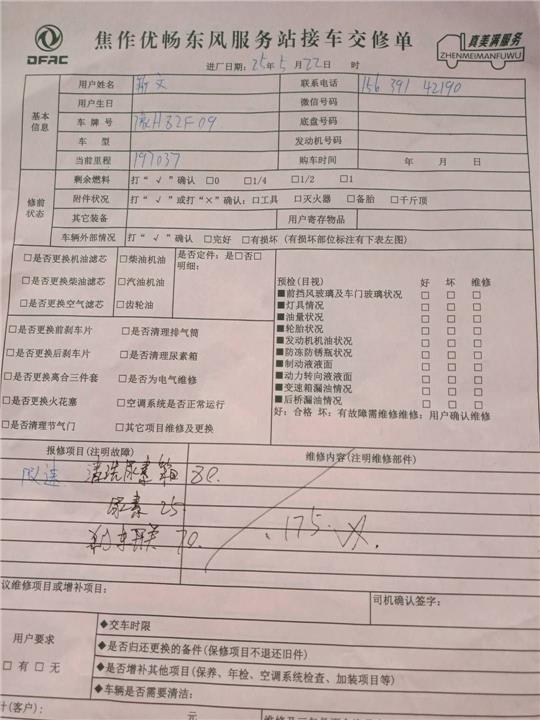 DFAC
焦作优畅东风服务站接车交修单
真美满服务
ZHENMEIMANFUWU
进厂日期：25年5月22日 时
基本信息
用户姓名 联系电话 156 391 42190
用户生日 微信号码
车牌号 豫H82F09 底盘号码
车型 发动机号码
当前里程 197037 购车时间 年 月 日
修前状态
剩余燃料 打“√”确认 □0 □1/4 □1/2 □1
附件状况 打“√”或打“×”确认：□工具 □灭火器 □备胎 □千斤顶
其它装备 用户寄存物品
车辆外部情况 打“√”确认 □完好 □有损坏（有损坏部位标注有下表左图）
□是否更换机油滤芯 □柴油机油 是否定件：是□否□
明细：
□是否更换柴油滤芯 □汽油机油
□是否更换空气滤芯 □齿轮油
□是否更换前刹车片 □是否清理排气筒
□是否更换后刹车片 □是否清理尿素箱
□是否更换离合三件套 □是否为电气维修
□是否更换火花塞 □空调系统是否正常运行
□是否清理节气门 □其它项目维修及更换
预检（目视） 好 坏 维修
■前挡风玻璃及车门玻璃状况 □ □ □
■灯具情况 □ □ □
■油量状况 □ □ □
■轮胎状况 □ □ □
■发动机机油状况 □ □ □
■防冻防锈瓶状况 □ □ □
■制动液液面 □ □ □
■动力转向液液面 □ □ □
■变速箱漏油情况 □ □ □
■后桥漏油情况 □ □ □
好：合格 坏：有故障需维修维修：用户确认维修
报修项目（注明故障） 维修内容（注明维修部件）
限速 清洗尿素箱 80.
尿素 25
刹车开关 70.
175.
议维修项目或增补项目：
司机确认签字：
用户要求
□有□无
◆交车时限
◆是否归还更换的备件（保修项目不退还旧件）
◆是否增补其他项目（保养、年检、空调系统检查、加装项目等）
◆车辆是否需要清洁：
计（客户）： 元